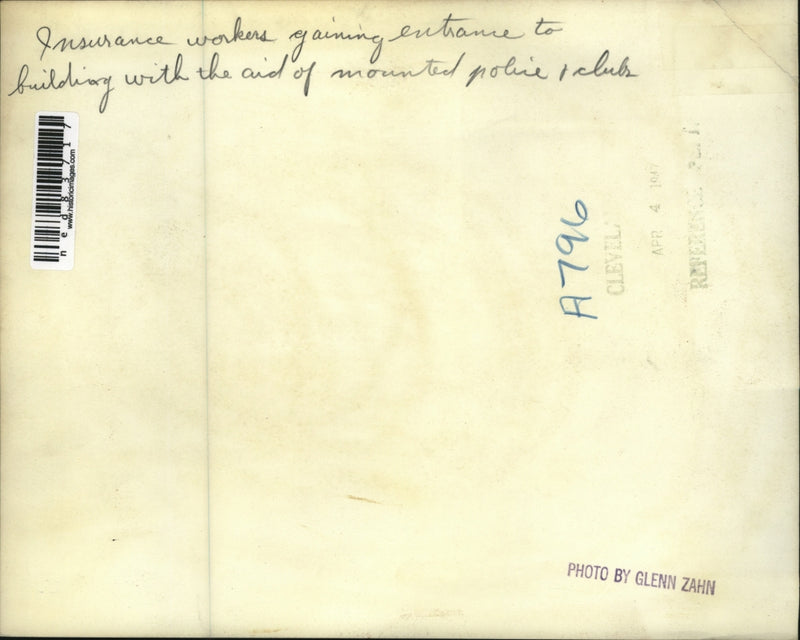 Insurance workers gaining entrance to
building with the aid of mounted police & clubs
ned83717
www.historicimages.com
A796
CLEVEL
APR 4 1947
REFERENCE
PHOTO BY GLENN ZAHN